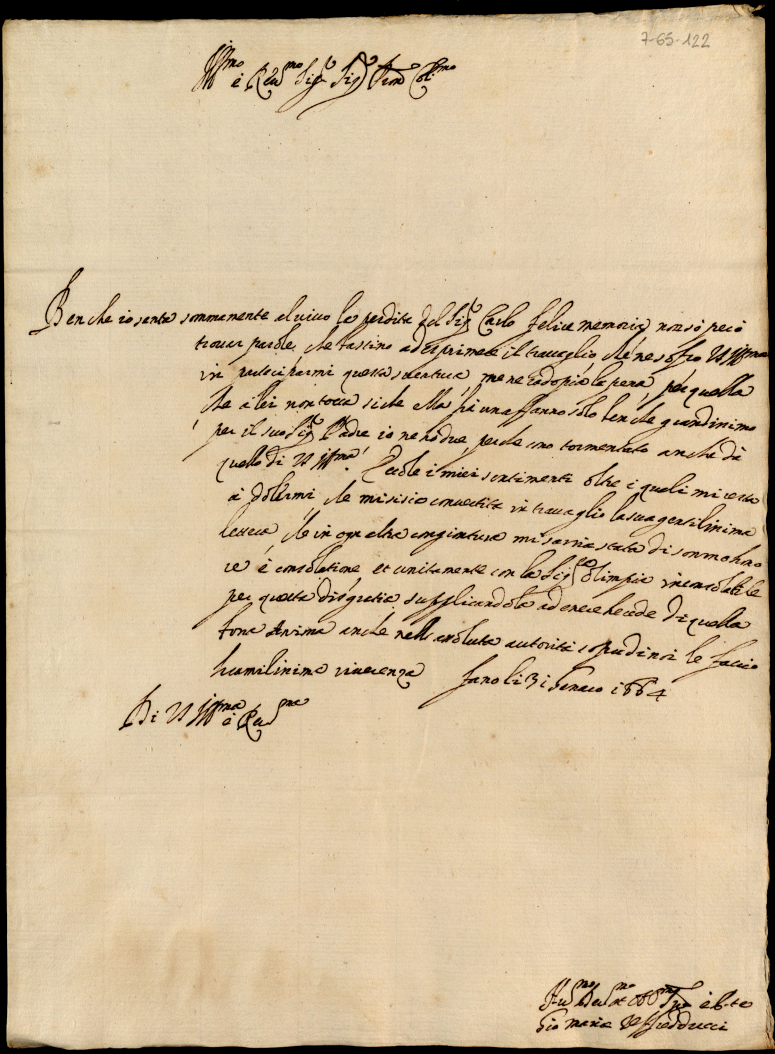 7-65-122
Ill.mo è Reu.mo Sig.r Sig.r Pron Col.mo
Ben che io senta sommamente al uiuo la perdita del Sig.r Carlo felice memoria non sò però
trouar parole, che bastino ad esprimere il trauaglio, che ne sofro VS Ill.ma
in participarmi questa suentura, me ne radopia la pena, per quella
che a lei non tocca si che Ella hà un affanno solo ben che grandissimo
per il suo Sig.r Padre io ne hò due perche sono tormentato anche da
quello di VS Ill.ma. Eccole i miei sentimenti oltre i quali mi resta
à dolermi, che mi si sia conuertita in trauaglio la sua gentilissima
lettera che in ogn altra congiontura mi sarria stata di sommo hono
re è consolatione et unitamente con la Sig.ra Olimpia inconsolabile
per questa disgratia supplicandola ad essere herede di quella
bona Anima anche nell asoluta autorità sopra di noi le faccio
humilissima riuerenza Fano li 31 Genaro 1664
Di VS Ill.ma è Reu.ma
Hu.mo Deu.mo et Obb.mo
Gio Maria